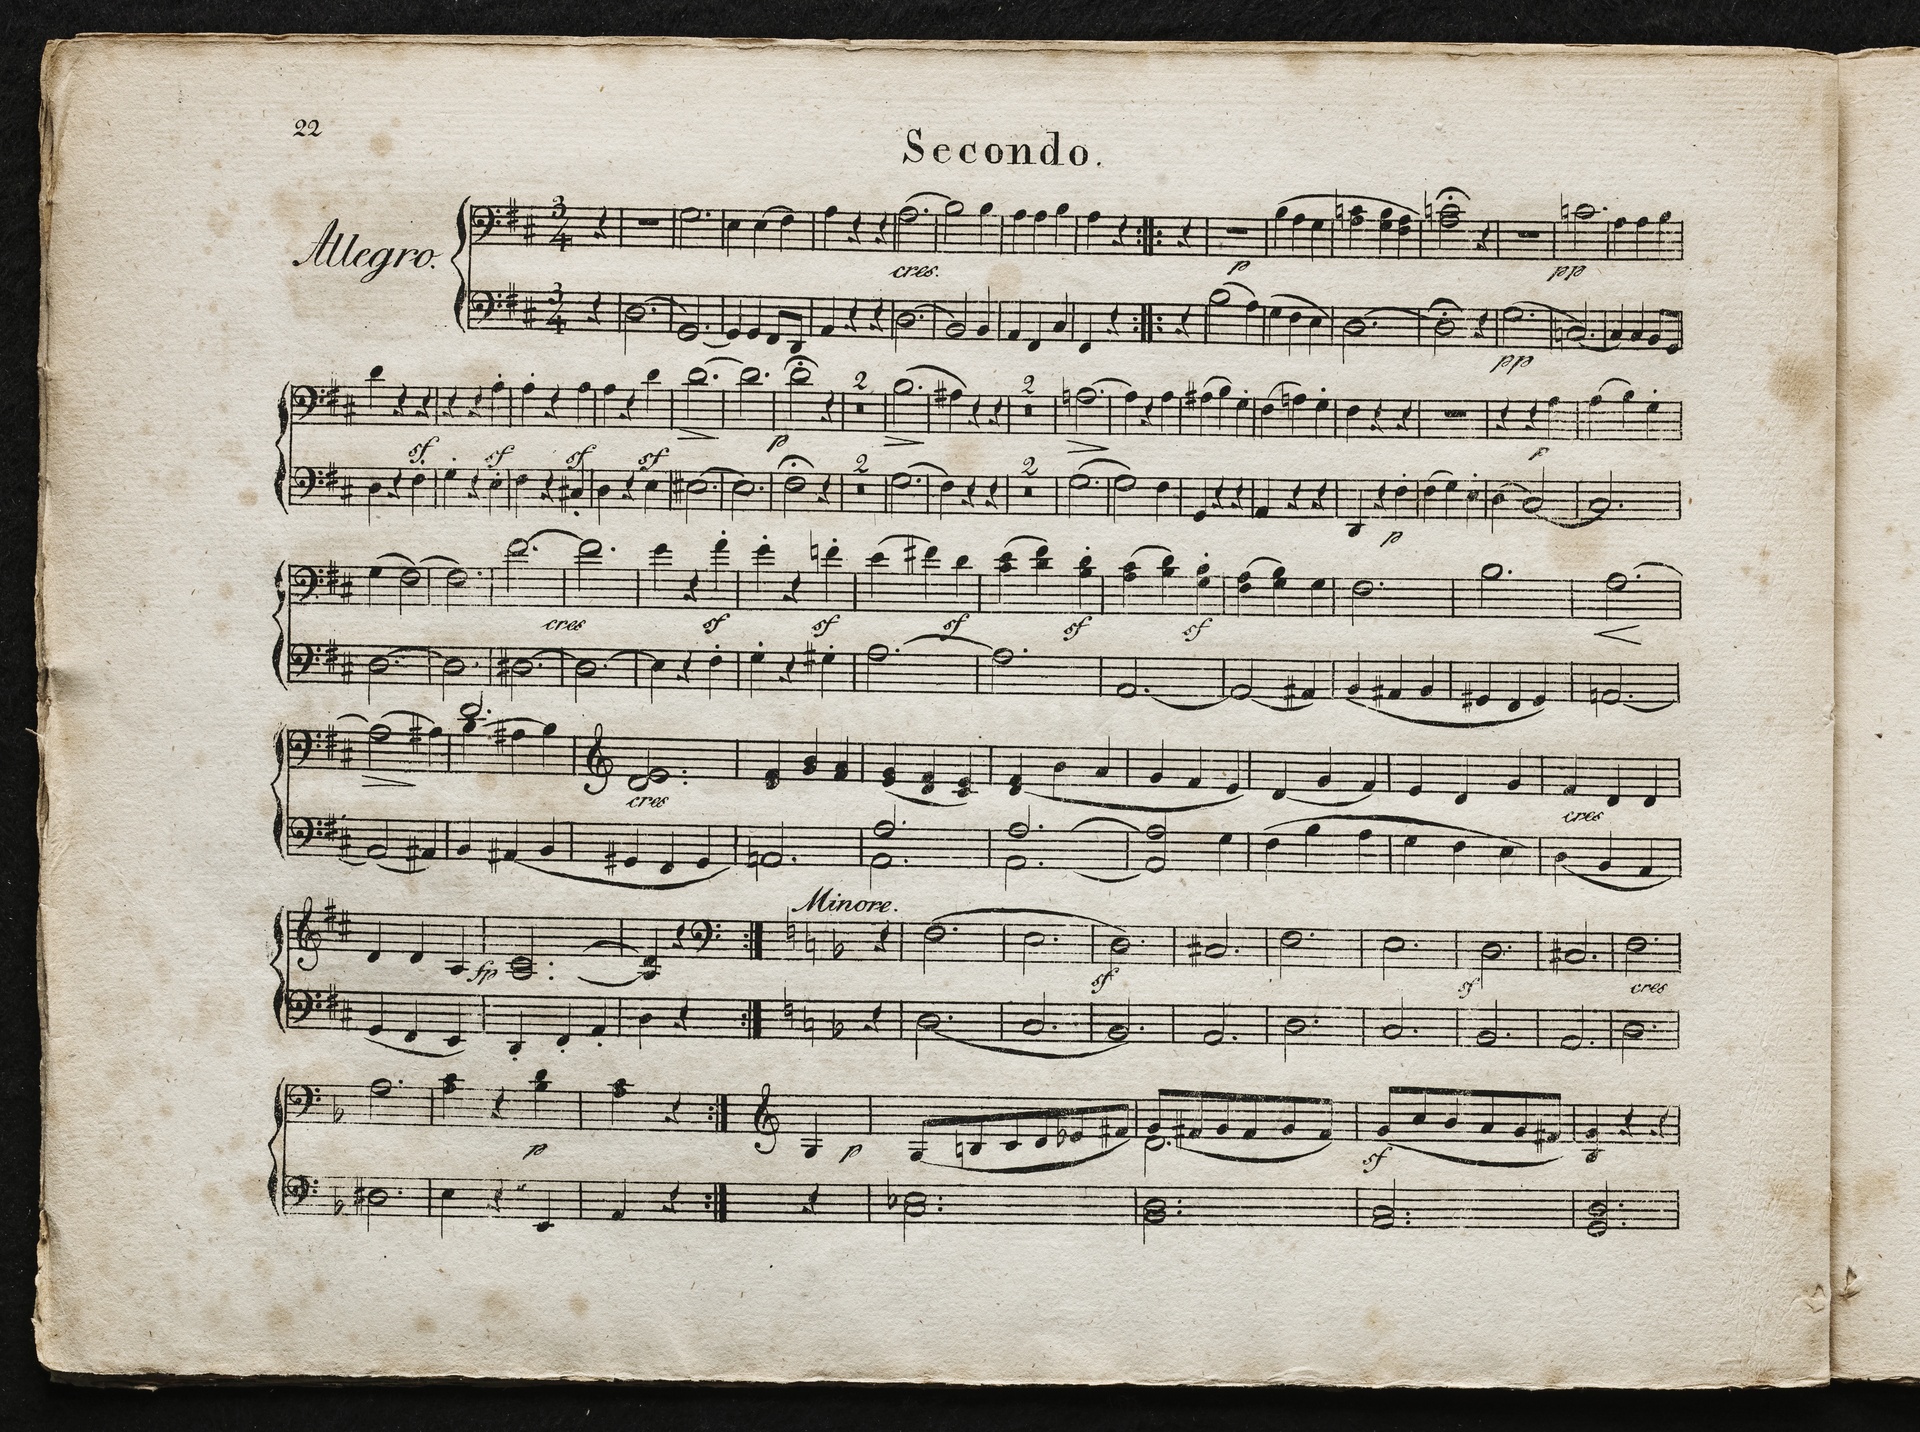 22
Secondo.
Allegro.
3/4
cres.
p
pp
3/4
pp
2
2
p
p
sf
sf
sf
sf
2
2
p
cres
sf
sf
sf
sf
sf
cres
cres
Minore.
fp
sf
sf
cres
p
p
sf